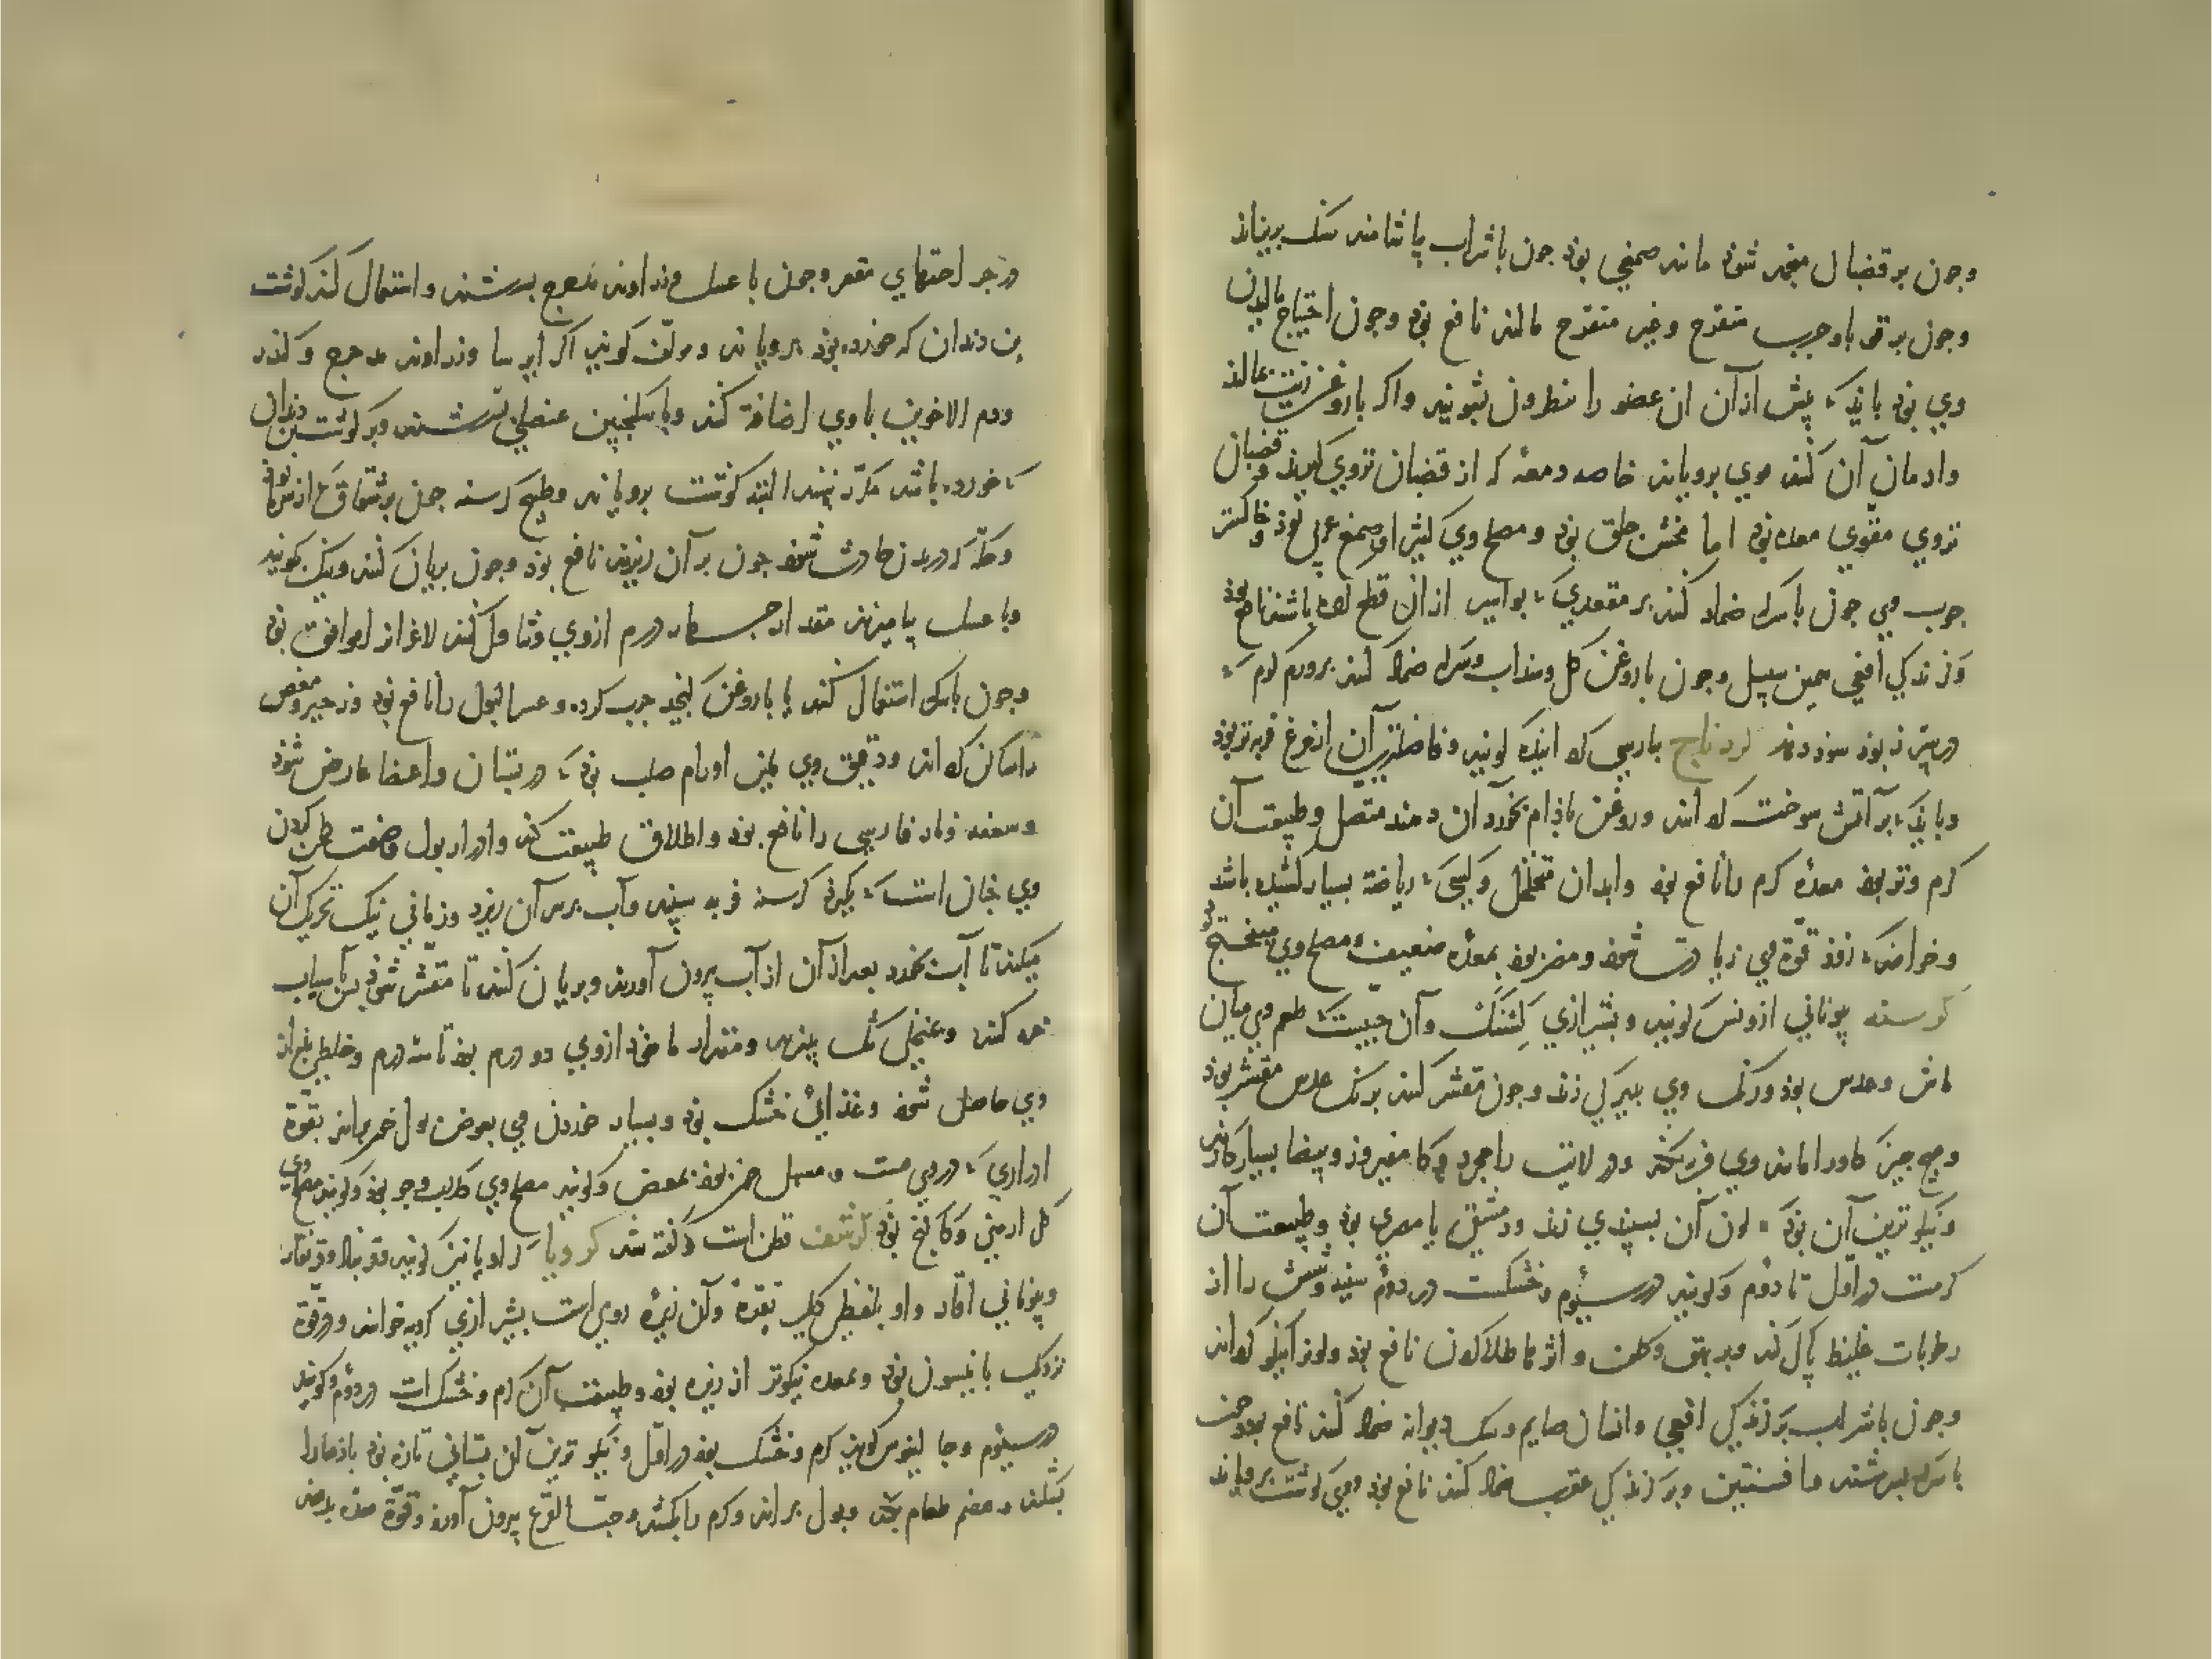 وجون بر قضبال منجمد شوذ مانند صمغی بوذ جون با شراب بیاشامند سنک بریزاند
وجون بر قوبا وجرب متقرح وغیر متقرح مالند نافع بوذ وجون احتیاج بمالیدن
وی بوذ بایذ که پیش از آن ان عضو را بنطرون بشویند واکر با روغن زیت بمالند
وادمان آن کنند موی برویاند خاصه دمعهٔ که از قضبان تروی کیرند وقضبان
تروی مقوی معده بوذ اما مخشن حلق بوذ ومصلح وی کثیرا وصمغ عربی بوذ وخاکستر
جوب وی جون با سرکه ضماد کنند بر مقعدی که بواسیر از آن قطع کرده باشند نافع بوذ
وکزندکی افعی همین سبیل وجون با روغن کل وسداب وسرکه ضماد کنند بر ورم کرم که
در سپرز بوذ سوذ دهد کردناج بارسی که اینک کویند وفاضلترین آن از مرغ فربه تر بوذ
وبایذ که بر آتش سوخت کرده اند وروغن باذام بخورد آن دهند متصل وطبیعت آن
کرم وتر بوذ معدهٔ کرم را نافع بوذ وابدان متخلخل وکسی که ریاضة بسیار کشیده باشد
وخواهد که زوذ قوة وی زیادت شوذ ومضر بوذ بمعدهٔ ضعیف ومصلح وی میبختج بوذ
کرسنه یونانی ازونس کویند وبشیرازی کشنک وآن حبیست که طعم وی میان
ماش وعدس بوذ ورنک وی بتیرکی زند وجون مقشر کنند برنک عدس مقشر بوذ
وهیچ جیز کاو را مانند وی فربه نکند ودر ولایت رامجرد وکامفیروز وبیضا بسیار کارند
ونیکوترین آن بوذ که لون آن بسپیدی زند ودمشقی یا مصری بوذ وطبیعت آن
کرمست در اول تا دوم وکویند در سیوم وخشکست در دوم سینه وشش را از
رطوبات غلیظ پاک کند وبر بهق وکلف واثرها طلا کردن نافع بوذ ولون را نیکو کرداند
وجون با شراب بر کزندکی افعی وانسان صایم وسک دیوانه ضماد کنند نافع بوذ وجون
با سرکه بسرشند با افسنتین وبر کزندکی عقرب ضماد کنند نافع بوذ وکوشت برویاند
در جراحتهای مقعر وجون با عسل وزراوند مدحرج بسرشند واستعمال کنند کوشت
بن دندان که خورده بوذ برویاند ومولف کوید اکر ایرسا وزراوند مدحرج وکندر
ودم الاخوین با وی اضافة کنند وبا سکنجبین عنصلی بسرشند وبر کوشت بن دندان
که خورده باشد مکرر بنهند البته کوشت برویاند وطبیخ کرسنه جون بر شقاق که از سرما بوذ
وحکهٔ که در بدن حادث شوذ جون بر آن ریزند نافع بوذ وجون بریان کنند ونیک بکوبند
وبا عسل بیامیزند مقدار جهار درم از وی وتناول کنند لاغرانرا موافق بوذ
وجون با سرکه استعمال کنند یا با روغن کنجد جرب کرده وعسر البول را نافع بوذ وزحیر ومغص
را ساکن کرداند ودقیق وی ملین اورام صلب بوذ که در پستان واعضا عارض شوذ
وسعفه ونار فارسی را نافع بوذ واطلاق طبیعت کند وادرار بول وصفت طحن کردن
وی جنان است که بکیرند کرسنه فربه سپید وآب بر سر آن ریزد وزمانی نیک تحریک آن
میکند تا آب بخورد بعد از آن از آب بیرون آورند وبریان کنند تا مقشر شوذ پس بآسیاب
خرد کنند وبمنخل تنک بپزند ومقدار ماخوذ از وی دو درم بوذ تا سه درم وخلطی غلیظ از
وی حاصل شوذ وغذای خشک بوذ وبسیار خوردن وی بعوض بول خون براند بقوة
ادراری که در وی هست ومسهل خون بوذ بمغص وکویند مصلح وی کلاب وجو بوذ وکویند مصلح وی
کل ارمنی وکاکنج بوذ کرسف قطن است وکفته شد کرویا کراویا نیز کویند قرنباد وقرنقار
ویونانی اقارو او بلفظی دیکر تقرده وآن زیرهٔ رومی است بشیرازی کرویه خوانند ودر قوة
نزدیک بانیسون بوذ وبمعده نیکوتر از زیره بوذ وطبیعت آن کرم وخشک است در دوم وکویند
در سیوم وجالینوس کوید کرم وخشک بوذ در اول ونیکوترین آن بستانی تازه بوذ باذها را
بشکند وهضم طعام بکند وبول براند وکرم را بکشد وحب القرع بیرون آورد وقوة معده بدهد